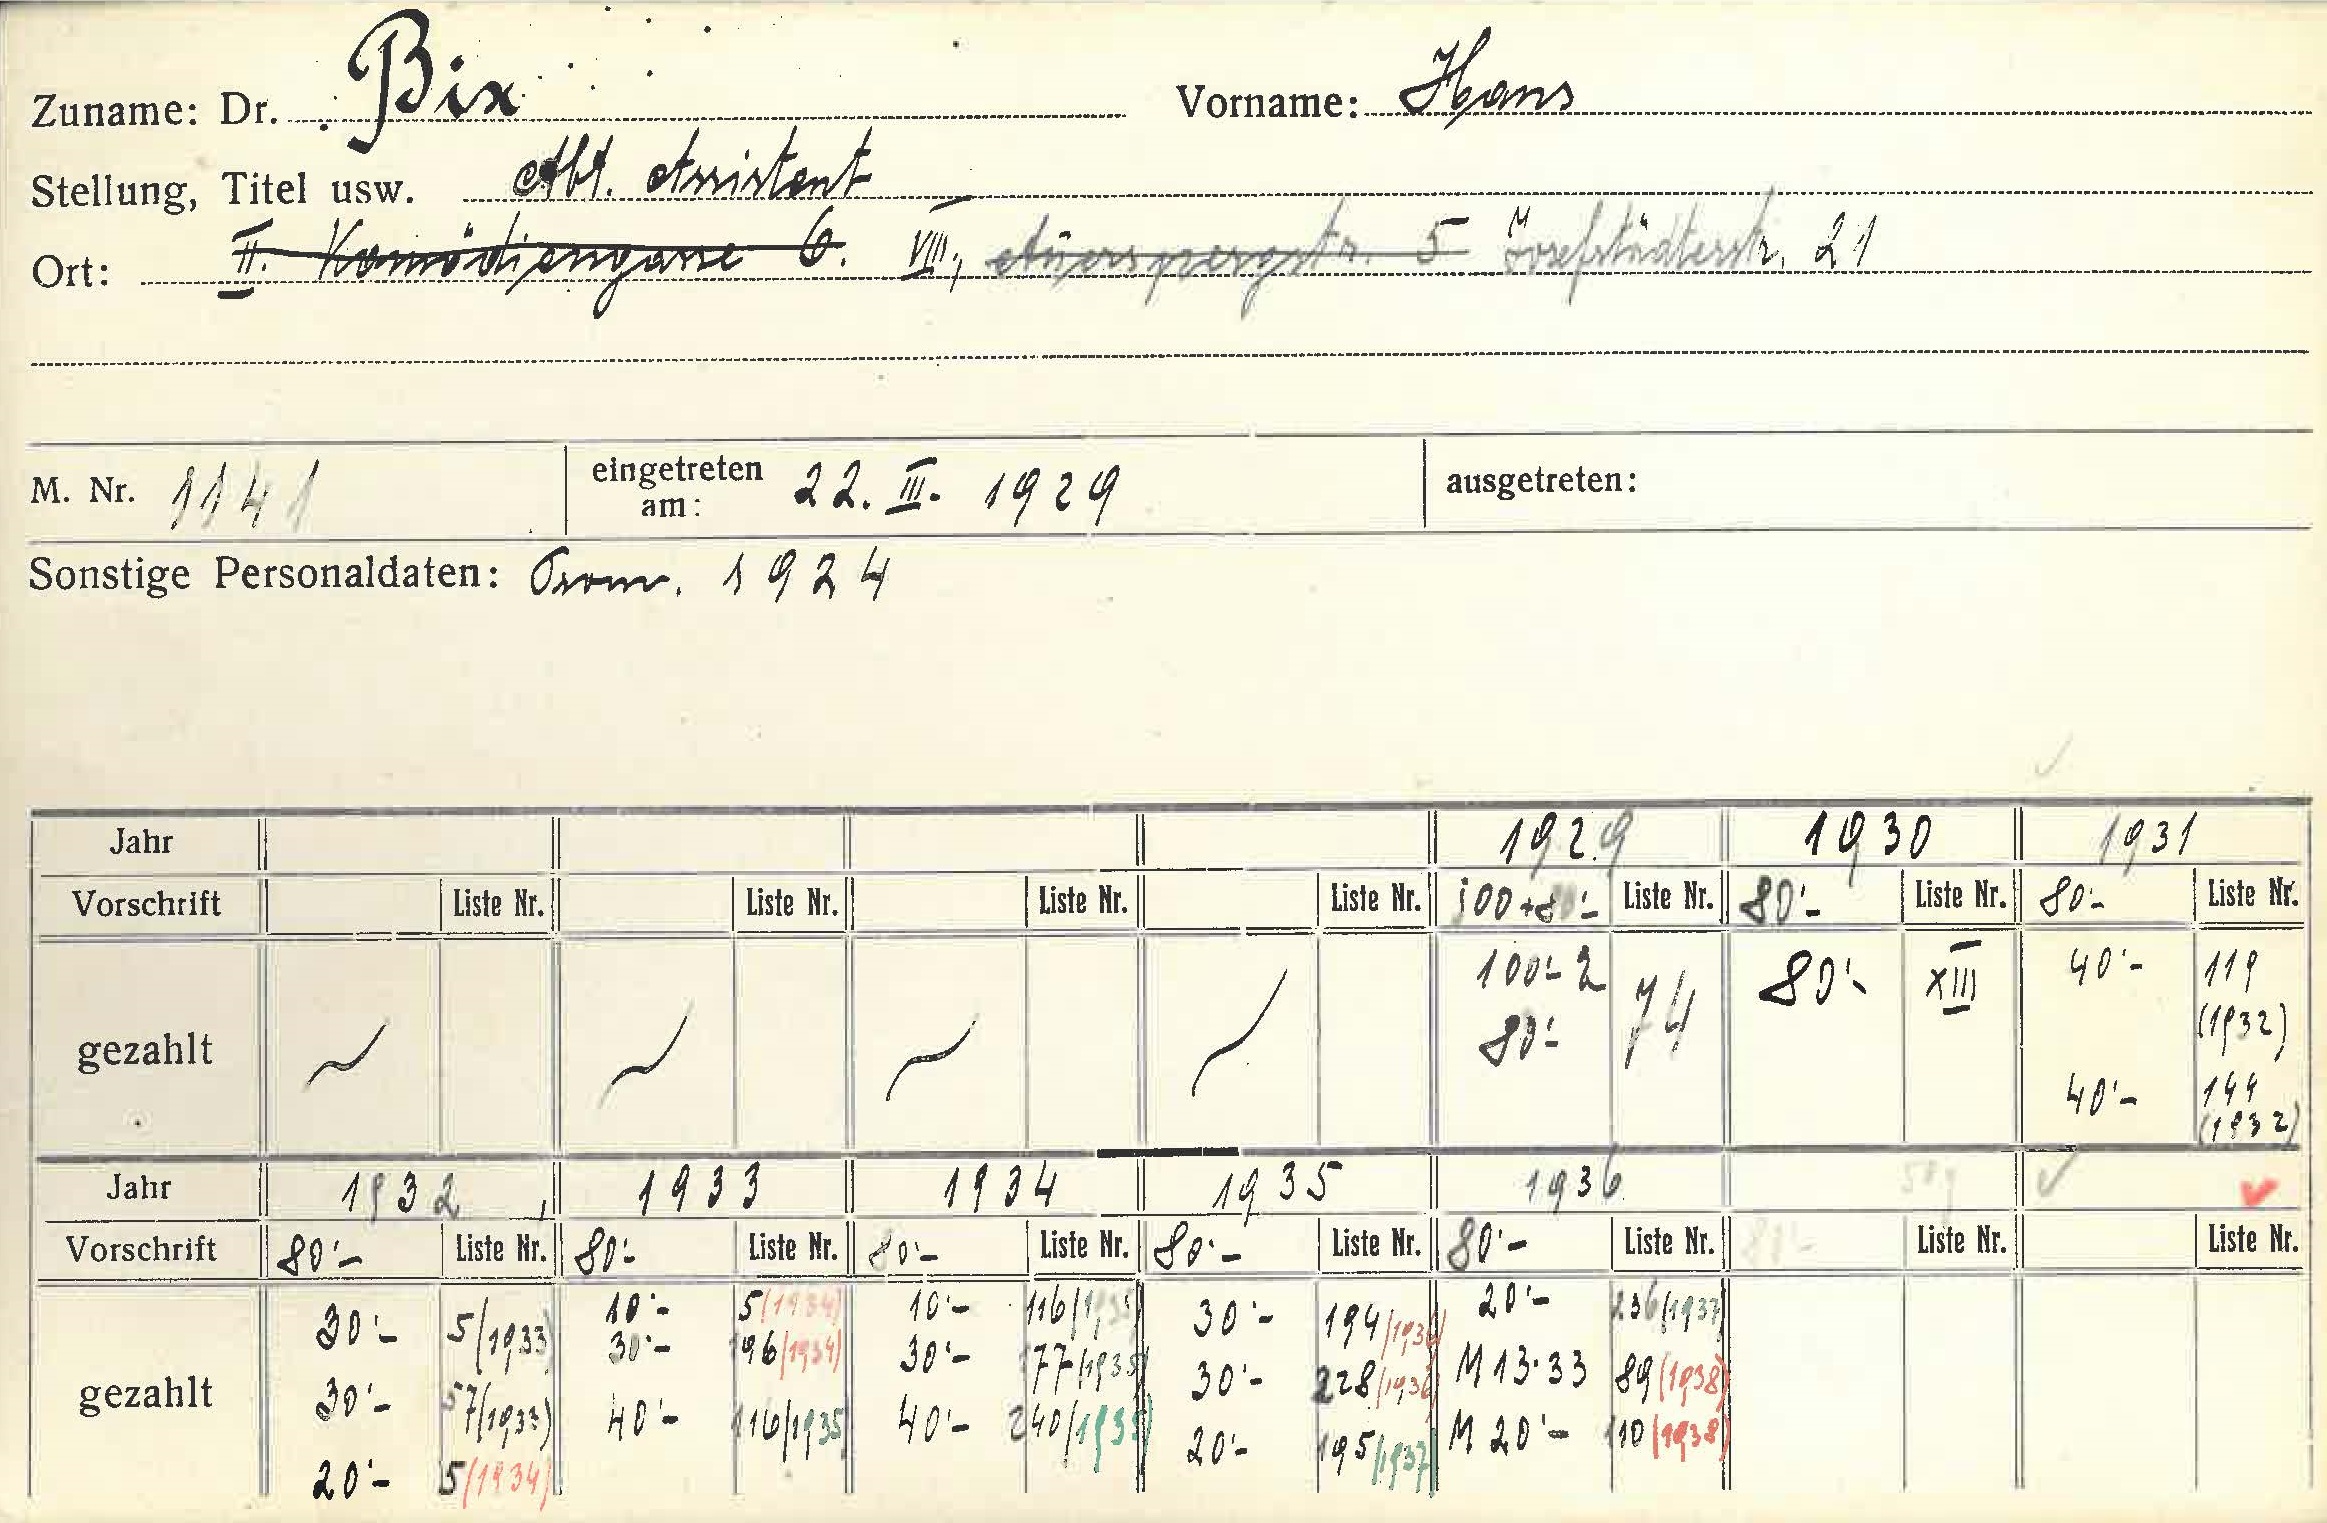 Zuname: Dr. Bix Vorname: Hans
Stellung, Titel usw. Abt. Assistent
Ort: II. Komödiengasse 6. VIII., Auerspergstr. 5 Josefstädterstr. 21
M. Nr. 1141 eingetreten am: 22. III. 1929 ausgetreten:
Sonstige Personaldaten: Prom. 1924
Jahr 1929 1930 1931
Vorschrift Liste Nr. Liste Nr. Liste Nr. Liste Nr. 100+80'- Liste Nr. 80'- Liste Nr. 80'- Liste Nr.
gezahlt 100'- 2 74 80'- XIII 40'- 119
80'- (1932)
40'- 144
(1932)
Jahr 1932 1933 1934 1935 1936
Vorschrift 80'- Liste Nr. 80'- Liste Nr. 80'- Liste Nr. 80'- Liste Nr. 80'- Liste Nr. 80'- Liste Nr. Liste Nr.
gezahlt 30'- 5/1933 10'- 5/(1934) 10'- 116/1935 30'- 194/1936 20'- 236/1937
30'- 57/(1933) 30'- 196/1934) 30'- 177/1935 30'- 228/1936 M 13·33 89/(1938)
20'- 5/(1934) 40'- 116/1935 40'- 240/1935 20'- 195/1937 M 20'- 110/(1938)